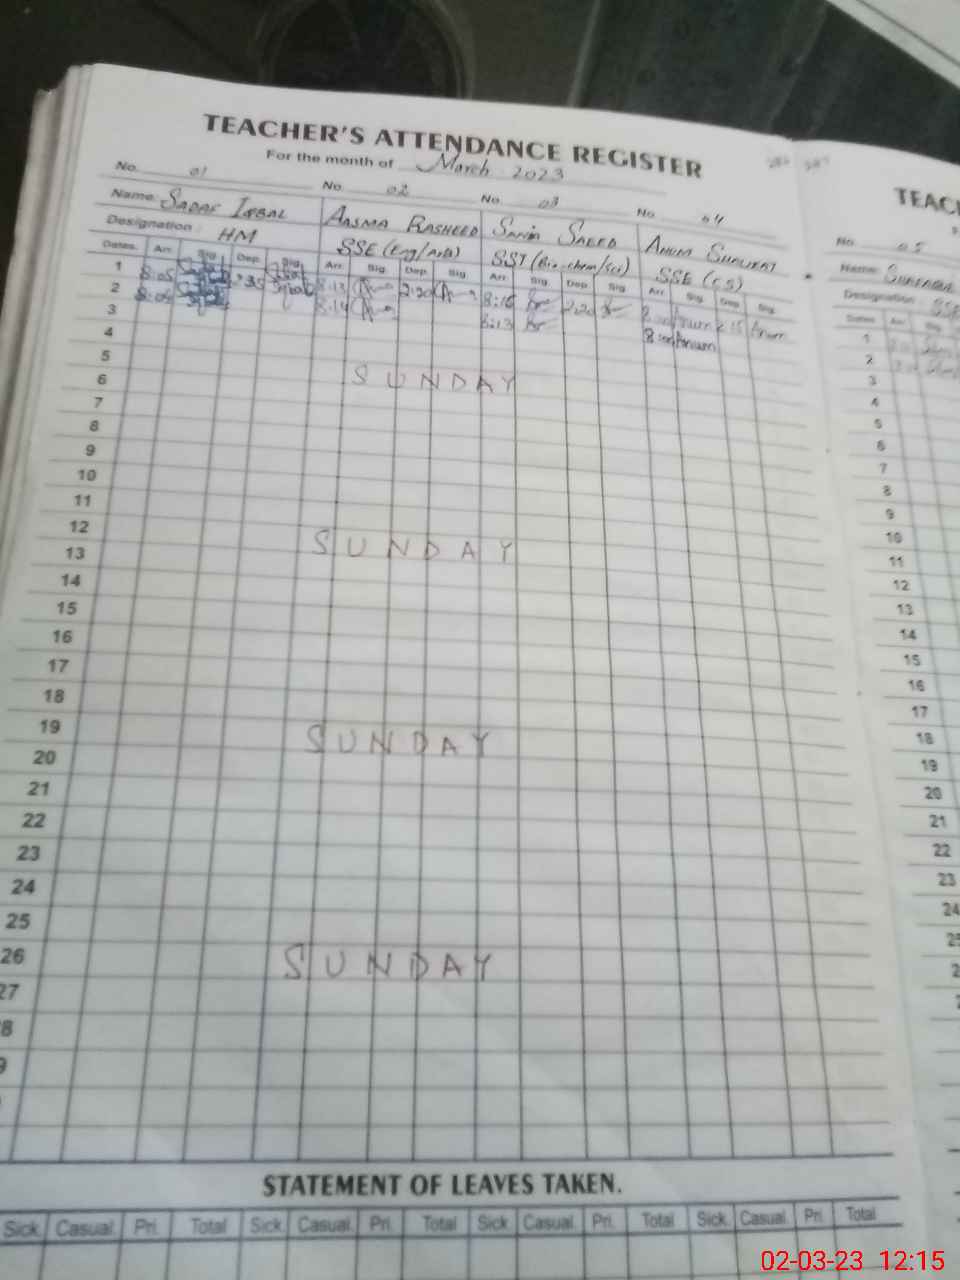 TEACHER'S ATTENDANCE REGISTER
For the month of March 2023
No. 01 No 02 No. 03 No. 04
Name: SADAF IQBAL AASMA RASHEED SANIA SAEED
Designation: HM SSE (Eng/Arb) SST (Bio-chem/Sci) SSE (CS)
Dates. Arr. Sig Dep. Sig. Arr. Sig. Dep Sig Arr. Sig. Dep Sig Arr Sig Dep Sig
1 8:05 8:13 2:20 8:15 2:20 8:00 Anum 2:15 Anum
2 8:05 8:14 8:13 8:00 Anum
3
4
5 SUNDAY
6
7
8
9
10
11
12 SUNDAY
13
14
15
16
17
18
19 SUNDAY
20
21
22
23
24
25
26 SUNDAY
27
8
9
STATEMENT OF LEAVES TAKEN.
Sick. Casual. Pri. Total Sick. Casual. Pri. Total Sick. Casual. Pri. Total Sick. Casual. Pri. Total
TEAC
No. 05
Name:
Designation: SSE
Dates Arr. Sig.
1
2
3
4
5
6
7
8
9
10
11
12
13
14
15
16
17
18
19
20
21
22
23
24
25
2
02-03-23 12:15